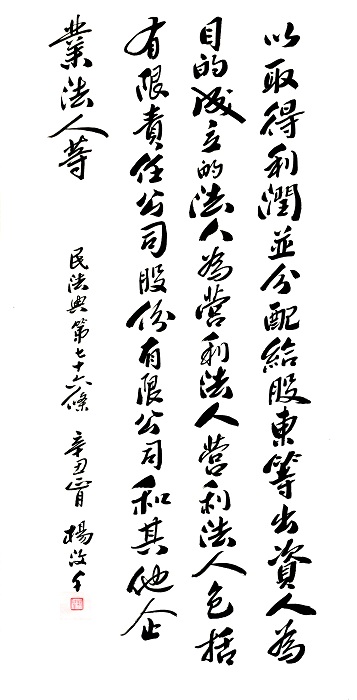 以取得利潤並分配給股東等出資人為
目的成立的法人為營利法人營利法人包括
有限責任公司股份有限公司和其他企
業法人等
民法典第七十六條 辛丑正月 楊汝千